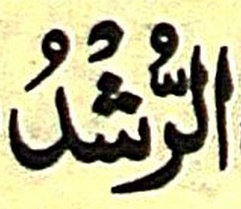 الرُّشْدُ